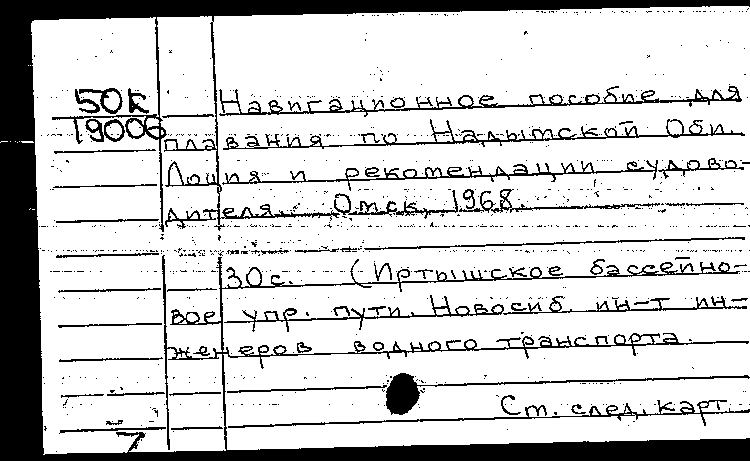 50К
19006
Навигационное пособие для
плавания по Надымской Оби.
Лоция и рекомендации судово-
дителя. Омск, 1968.
30с. (Иртышское бассейно-
вое упр. пути. Новосиб. ин-т ин-
женеров водного транспорта.
Ст. след. карт.
7